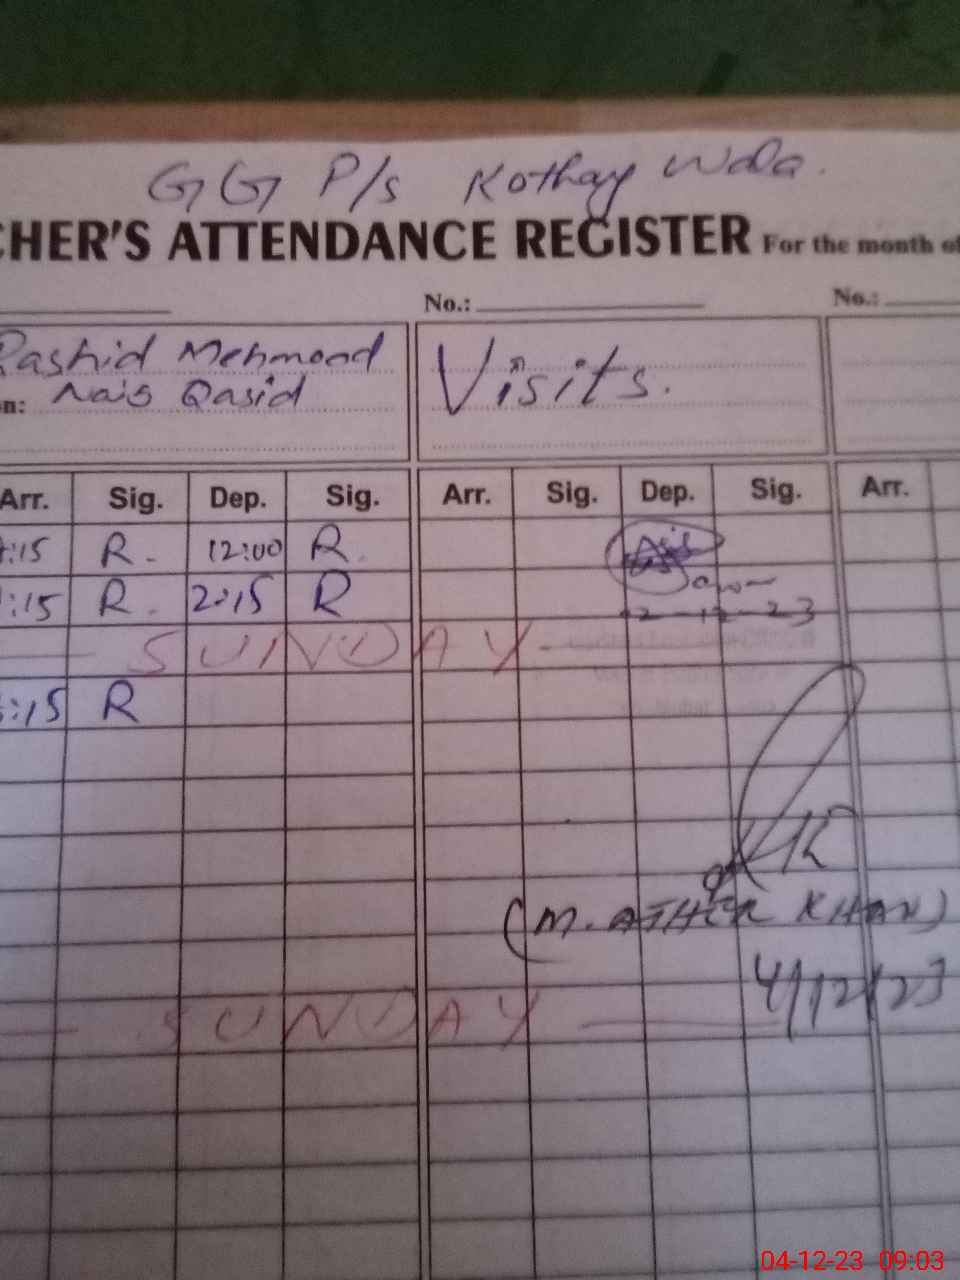 GG P/s Kothay Wala.
CHER'S ATTENDANCE REGISTER For the month of
No.: No.:
Rashid Mehmood Visits.
n: Naib Qasid
Arr. Sig. Dep. Sig. Arr. Sig. Dep. Sig. Arr.
:15 R. 12:00 R.
:15 R. 2:15 R
2-12-23
SUNDAY
:15 R
(M. ATHER KHAN)
4/12/23
SUNDAY
04-12-23 09:03